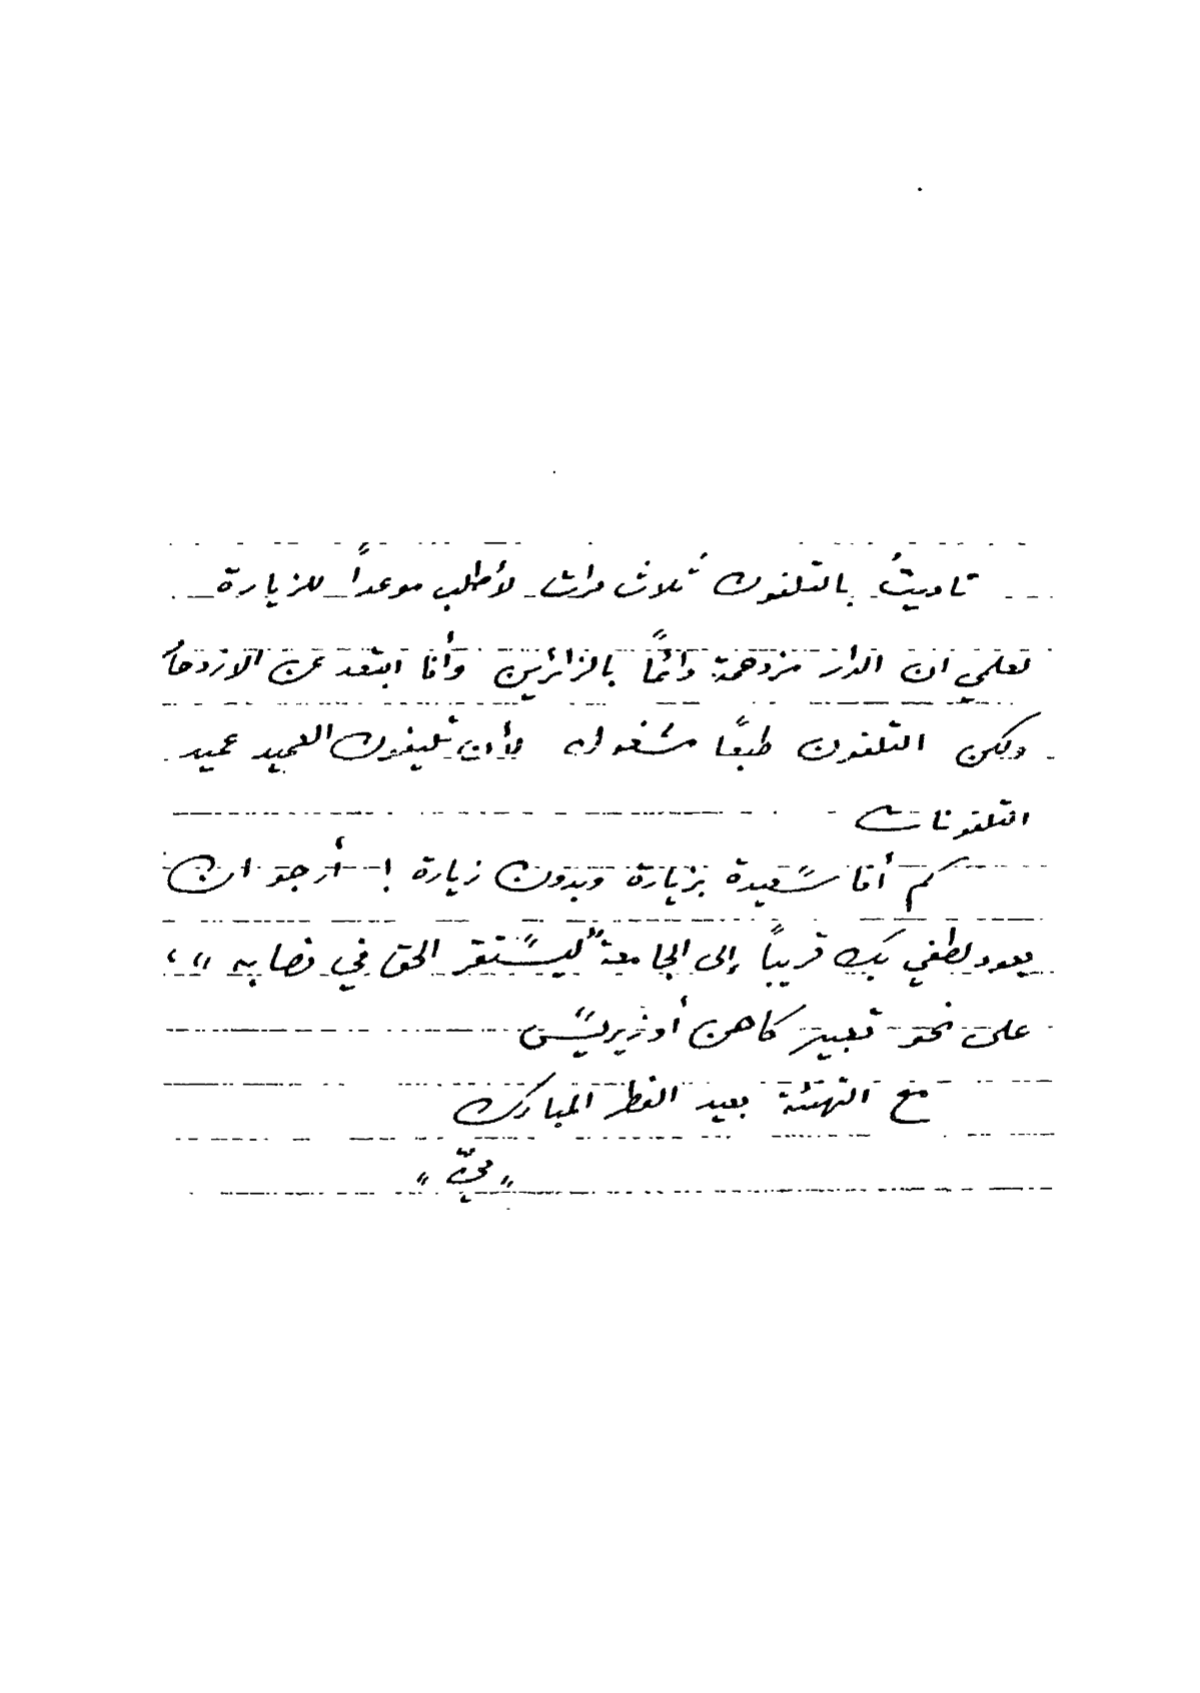 ناديتُ بالتلفون ثلاث مرات لأطلب موعداً للزيارة
لعلمي ان الدار مزدحمة دائمًا بالزائرين وأنا ابتعد عن الازدحام
ولكن التلفون طبعًا مشغول لأن تليفون العميد عميد
التلفونات
كم أنا سعيدة بزيارة وبدون زيارة ! أرجو ان
يعود لطفي بك قريباً إلى الجامعة "ليستقر الحق في نصابه"،
على نحو تعبير كاهن أوزيريس
مع التهنئة بعيد الفطر المبارك
"ميّ"